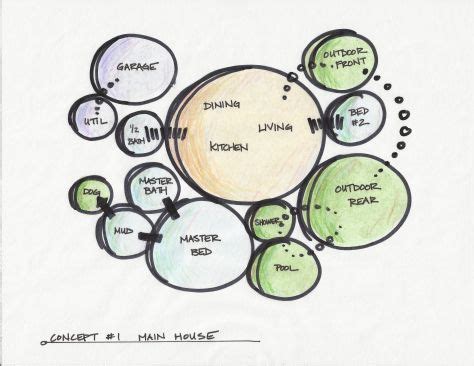 GARAGE
OUTDOOR
FRONT
DINING
UTIL
½
BATH
LIVING
BED
#2
KITCHEN
DOG
MASTER
BATH
OUTDOOR
REAR
SHOWER
MUD
MASTER
BED
POOL
CONCEPT #1 MAIN HOUSE